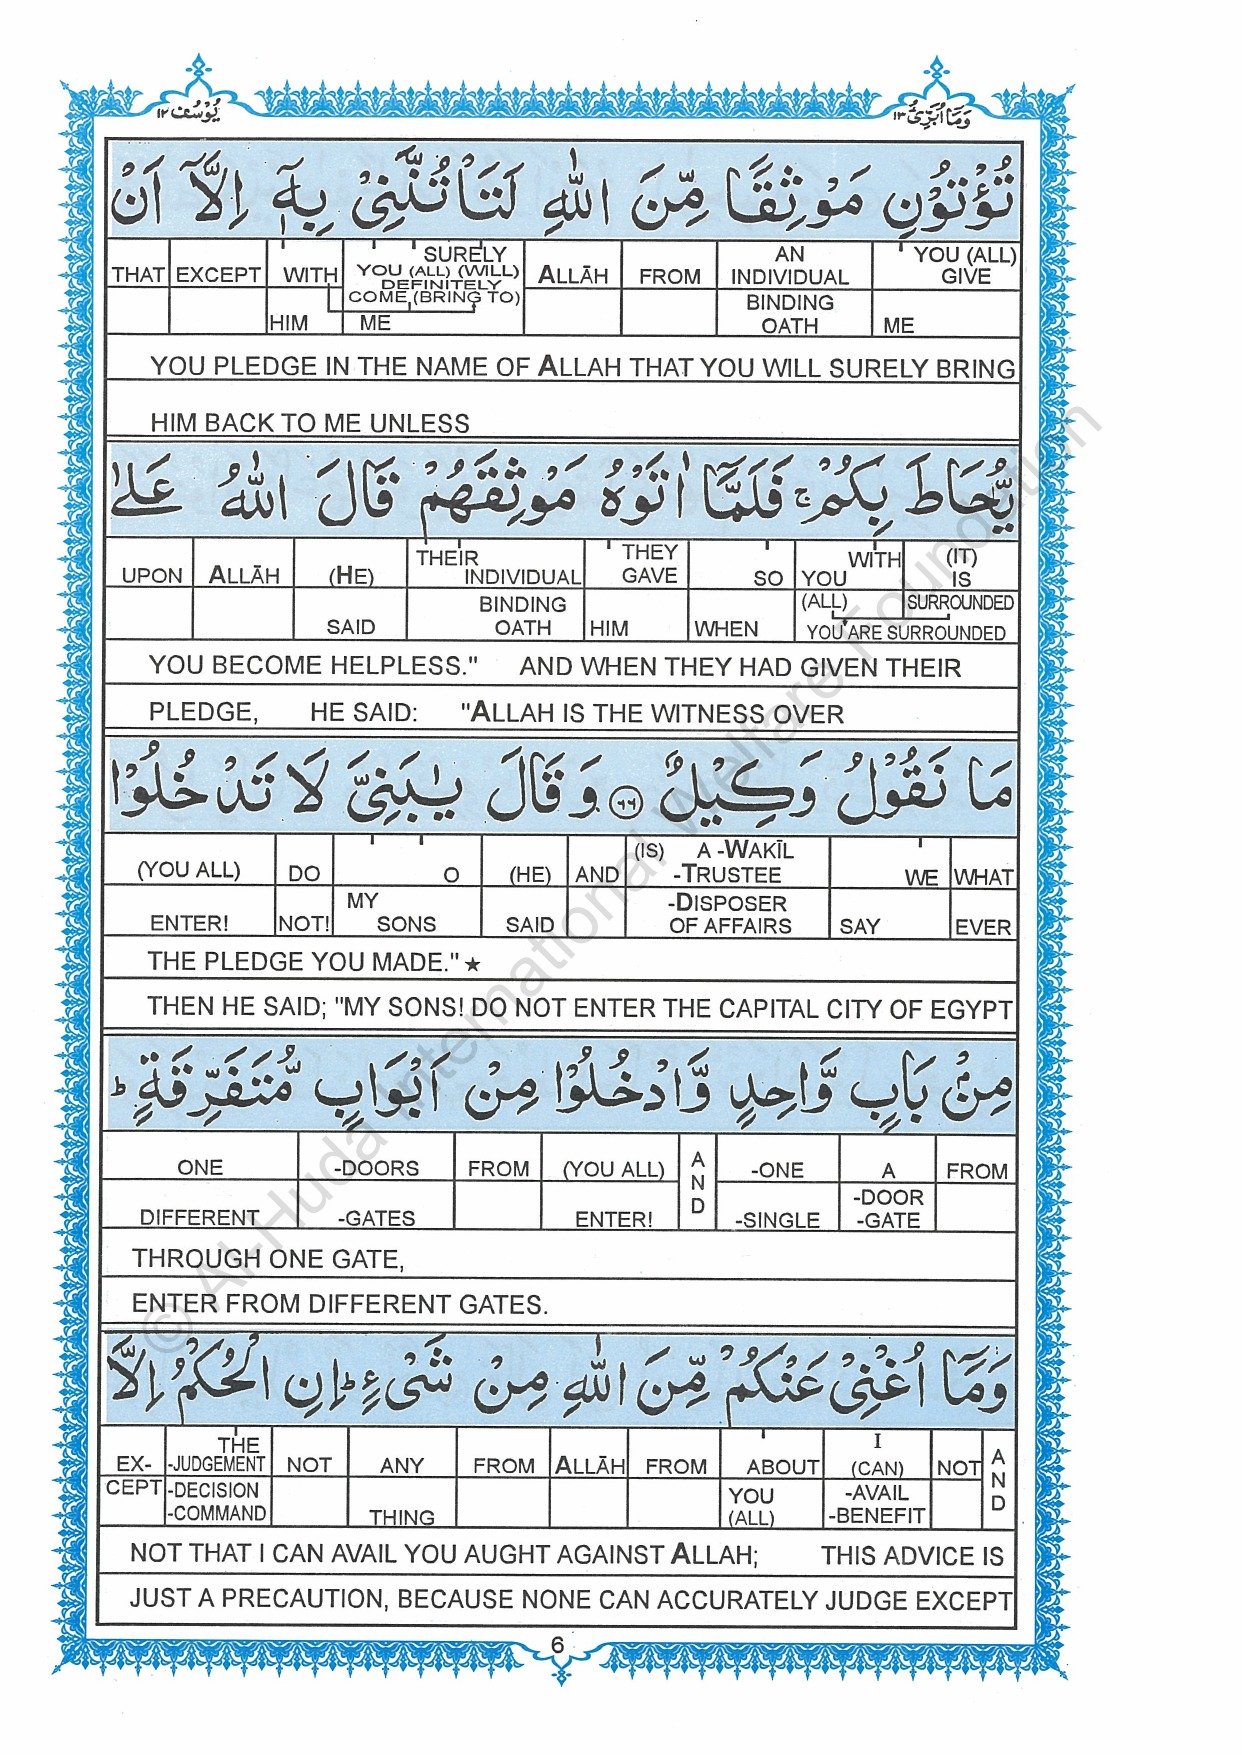 وَمَاۤ اُبَرِّئُ ١٣
یُوْسُف ١٢
تُؤْتُوْنِ مَوْثِقًا مِّنَ اللّٰهِ لَتَاْتُنَّنِیْ بِهٖۤ اِلَّاۤ اَنْ
THAT EXCEPT WITH SURELY YOU (ALL) (WILL) DEFINITELY COME (BRING TO) ALLĀH FROM AN INDIVIDUAL YOU (ALL) GIVE
HIM ME BINDING OATH ME
YOU PLEDGE IN THE NAME OF ALLAH THAT YOU WILL SURELY BRING
HIM BACK TO ME UNLESS
یُّحَاطَ بِكُمْ ۚ فَلَمَّاۤ اٰتَوْهُ مَوْثِقَهُمْ قَالَ اللّٰهُ عَلٰى
UPON ALLĀH (HE) THEIR INDIVIDUAL THEY GAVE SO WITH YOU (IT) IS
SAID BINDING OATH HIM WHEN (ALL) SURROUNDED
YOU ARE SURROUNDED
YOU BECOME HELPLESS." AND WHEN THEY HAD GIVEN THEIR
PLEDGE, HE SAID: "ALLAH IS THE WITNESS OVER
مَا نَقُوْلُ وَكِیْلٌ ﴿٦٦﴾ وَ قَالَ یٰبَنِیَّ لَا تَدْخُلُوْا
(YOU ALL) DO O (HE) AND (IS) A -WAKĪL -TRUSTEE WE WHAT
ENTER! NOT! MY SONS SAID -DISPOSER OF AFFAIRS SAY EVER
THE PLEDGE YOU MADE." ★
THEN HE SAID; "MY SONS! DO NOT ENTER THE CAPITAL CITY OF EGYPT
مِنْۢ بَابٍ وَّاحِدٍ وَّ ادْخُلُوْا مِنْ اَبْوَابٍ مُّتَفَرِّقَةٍ ؕ
ONE -DOORS FROM (YOU ALL) AND -ONE A FROM
DIFFERENT -GATES ENTER! -SINGLE -DOOR -GATE
THROUGH ONE GATE,
ENTER FROM DIFFERENT GATES.
وَمَاۤ اُغْنِیْ عَنْكُمْ مِّنَ اللّٰهِ مِنْ شَیْءٍ ؕ اِنِ الْحُكْمُ اِلَّا
EX- THE -JUDGEMENT NOT ANY FROM ALLĀH FROM ABOUT I (CAN) NOT AND
CEPT -DECISION -COMMAND THING YOU (ALL) -AVAIL -BENEFIT
NOT THAT I CAN AVAIL YOU AUGHT AGAINST ALLAH; THIS ADVICE IS
JUST A PRECAUTION, BECAUSE NONE CAN ACCURATELY JUDGE EXCEPT
6
© Al-Huda International Welfare Foundation